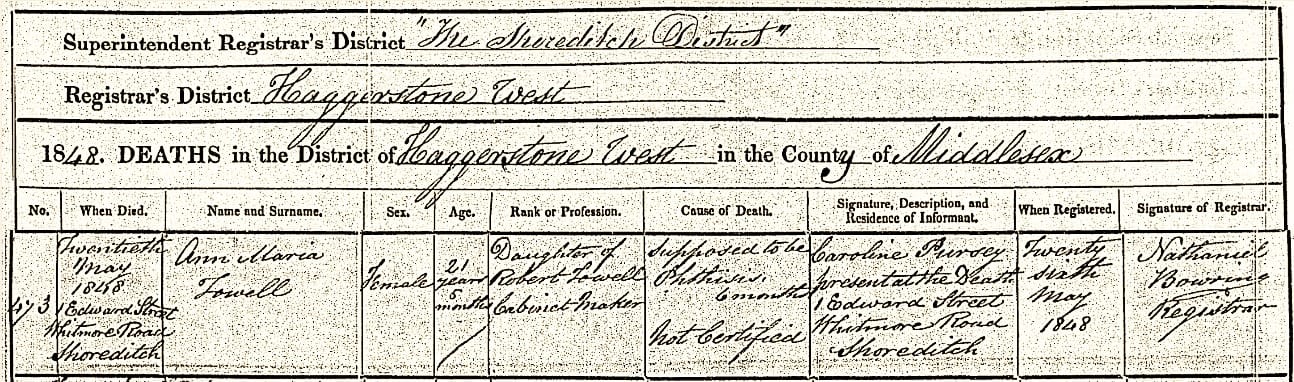 Superintendent Registrar's District "The Shoreditch District"
Registrar's District Haggerstone West
1848. DEATHS in the District of Haggerstone West in the County of Middlesex
No. When Died. Name and Surname. Sex. Age. Rank or Profession. Cause of Death. Signature, Description, and Residence of Informant. When Registered. Signature of Registrar.
473
Twentieth
May
1848
1 Edward Street
Whitmore Road
Shoreditch
Ann Maria
Towell
Female
21
years
months
Daughter of
Robert Towell
Cabinet Maker
Supposed to be
Phthisis
6 months
Not Certified
Caroline Pursey
present at the Death
1 Edward Street
Whitmore Road
Shoreditch
Twenty
sixth
May
1848
Nathaniel
Bowring
Registrar